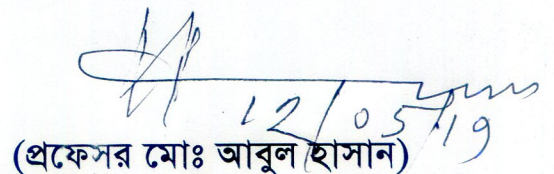 12/05/19
(প্রফেসর মোঃ আবুল হাসান)